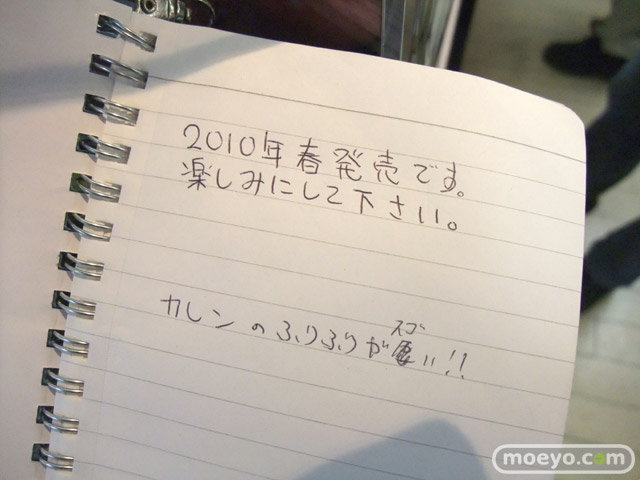 2010年春発売です。
楽しみにして下さい。
カレンのふりふりが凄い!!
スゴ
moeyo.com